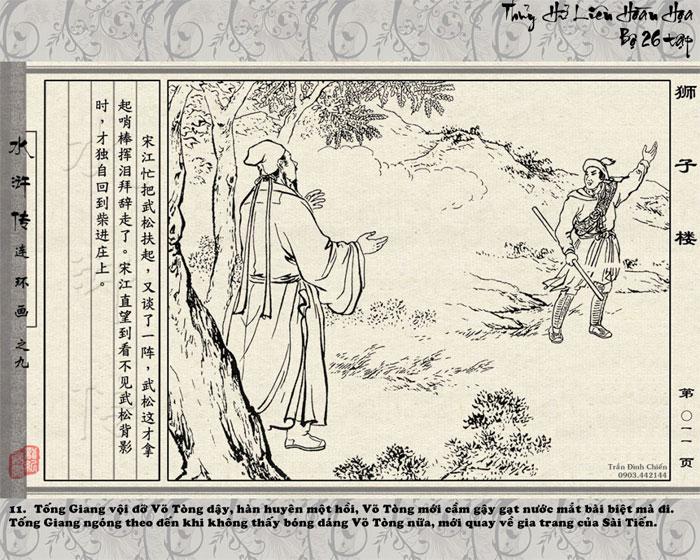 Thủy Hử Liên Hoàn Họa
Bộ 26 tập
狮子楼
第〇一一页
宋江忙把武松扶起，又谈了一阵，武松这才拿
起哨棒挥泪拜辞走了。宋江直望到看不见武松背影
时，才独自回到柴进庄上。
水浒传连环画之九
Trần Đình Chiến
0903.442144
11. Tống Giang vội đỡ Võ Tòng dậy, hàn huyên một hồi, Võ Tòng mới cầm gậy gạt nước mắt bài biệt mà đi.
Tống Giang ngóng theo đến khi không thấy bóng dáng Võ Tòng nữa, mới quay về gia trang của Sài Tiến.